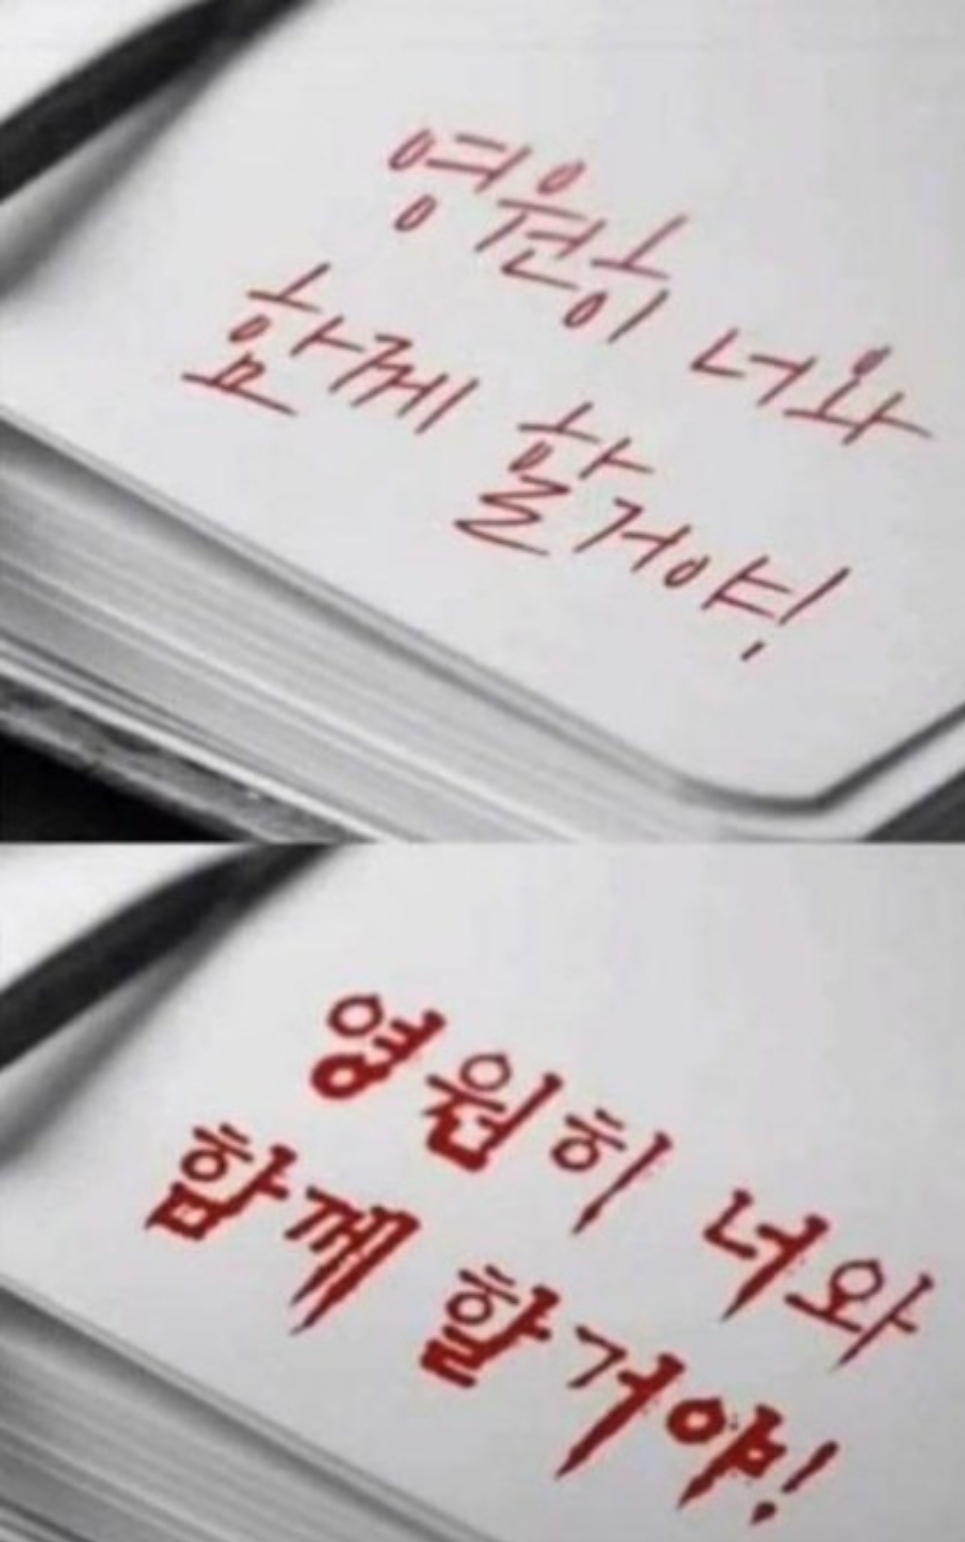 영원히 너와
함께 할거야!
영원히 너와
함께 할거야!